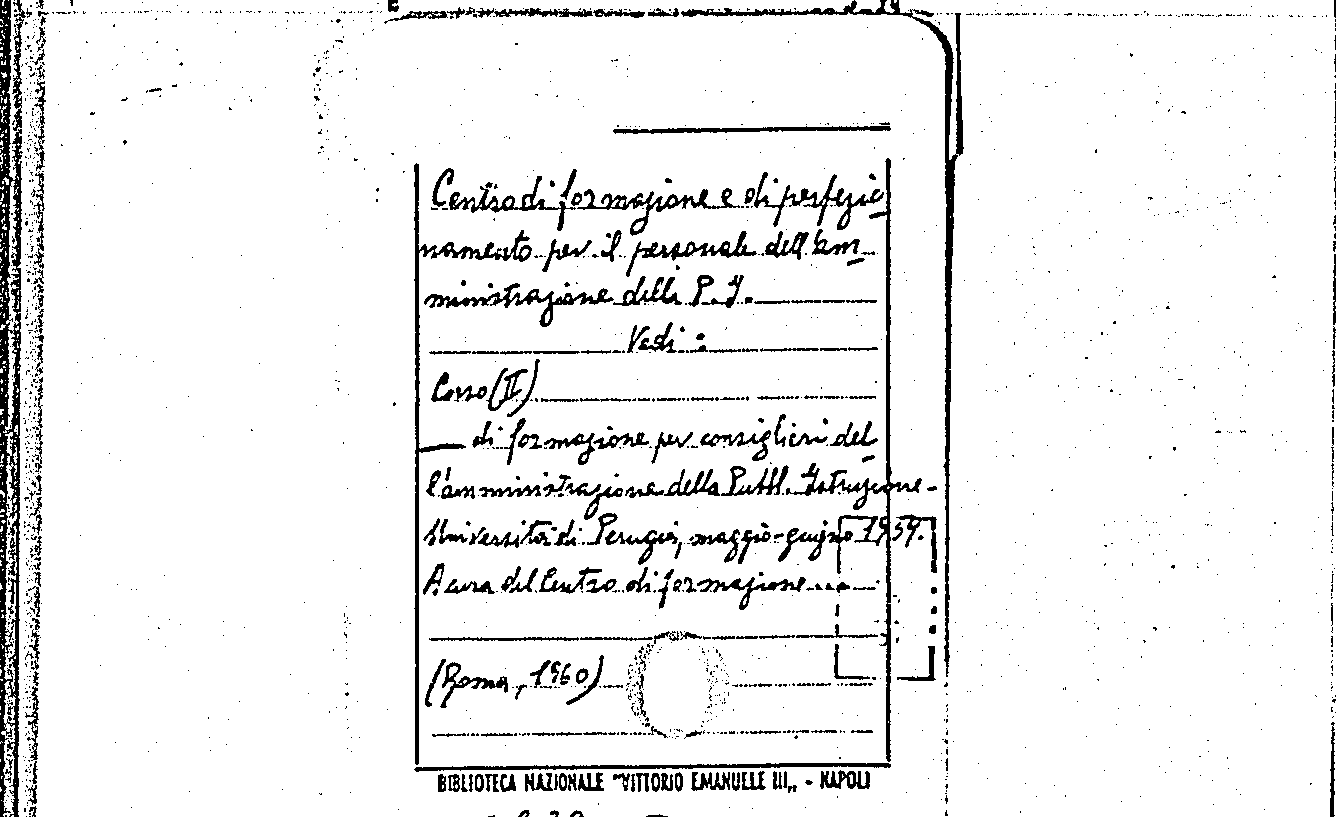 Centro di formazione e di perfezio
namento per il personale dell'am
ministrazione della P. I.
Vedi :
Corso (II)
— di formazione per consiglieri del
l'amministrazione della Pubbl. Istruzione -
Università di Perugia, maggio-giugno 1959.
A cura del Centro di formazione....
(Roma, 1960)
BIBLIOTECA NAZIONALE "VITTORIO EMANUELE III„ - NAPOLI